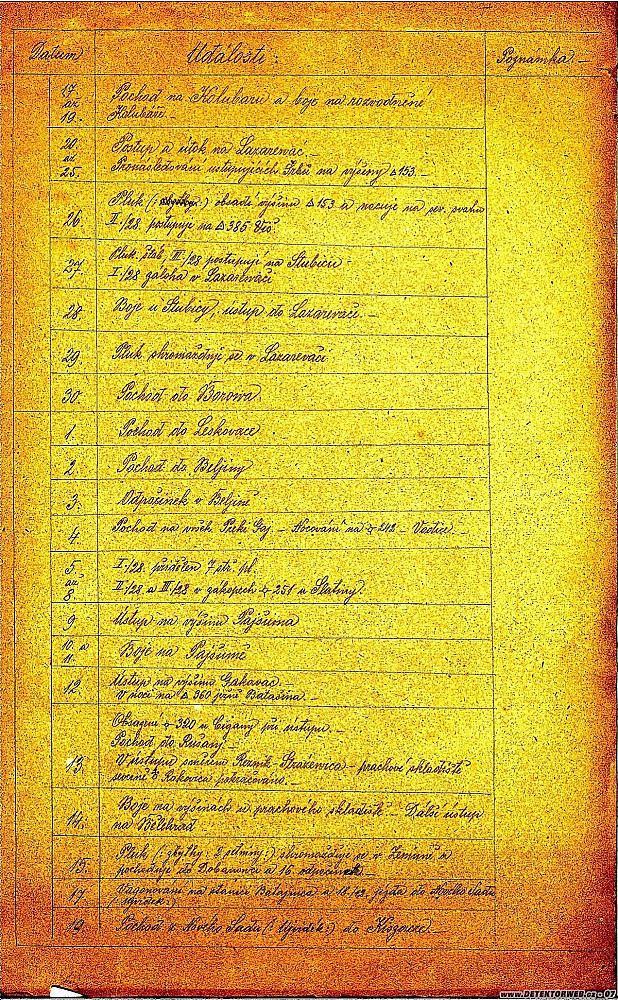 Datum Události: Poznámka.
17. Pochod na Kolubaru a boje na rozvodněné
až
19. Kolubáře.
20. Postup a útok na Lazarevac.
až
25. Pronásledování ustupujících Srbů na výšiny △ 153.
Pluk (: zbytky :) obsadí výšinu △ 153 a nocuje na sev. svahu
26. II./28. postupuje na △ 385
27. Pluk. štáb, III./28 postupují na Stubicu
I./28 záloha v Lazarevači
28. Boje u Stubicy, ústup do Lazarevače.
29. Pluk shromažďuje se v Lazarevači
30. Pochod do Borowa
1. Pochod do Leskovace
2. Pochod do Beljiny
3. Odpočinek v Beljině
4. Pochod na vršek Gaj. – Nocování na 242 –
5. I./28. přidělen 7 pl.
až II./28 a III./28 v zákopech 251 u Slatiny.
8.
9. Ústup na výšinu Pajšuma
10. a Boje na Pajšumě
11.
12. Ústup na výšinu
V noci na △ 360 jižně
Obsazení 320 u Cigany při ústupu.
Pochod do Rušanj.
13. V ústupu směrem Resnik – – prachové skladiště
severně Rakovica pokračováno.
14. Boje na výšinách u prachového skladiště – Další ústup
na Bělehrad
15. Pluk (: zbytky: 2 setniny :) shromažďuje se v Zemuně a
pochoduje do Dobanovce a 16. odpočinek.
17. Vagonování na stanici Batajnica a 18./12. jízda do Nového Sadu
(: Újvidek :)
19. Pochod z Nového Sadu (: Újvidek :) do
www.DETEKTORWEB.cz - 07